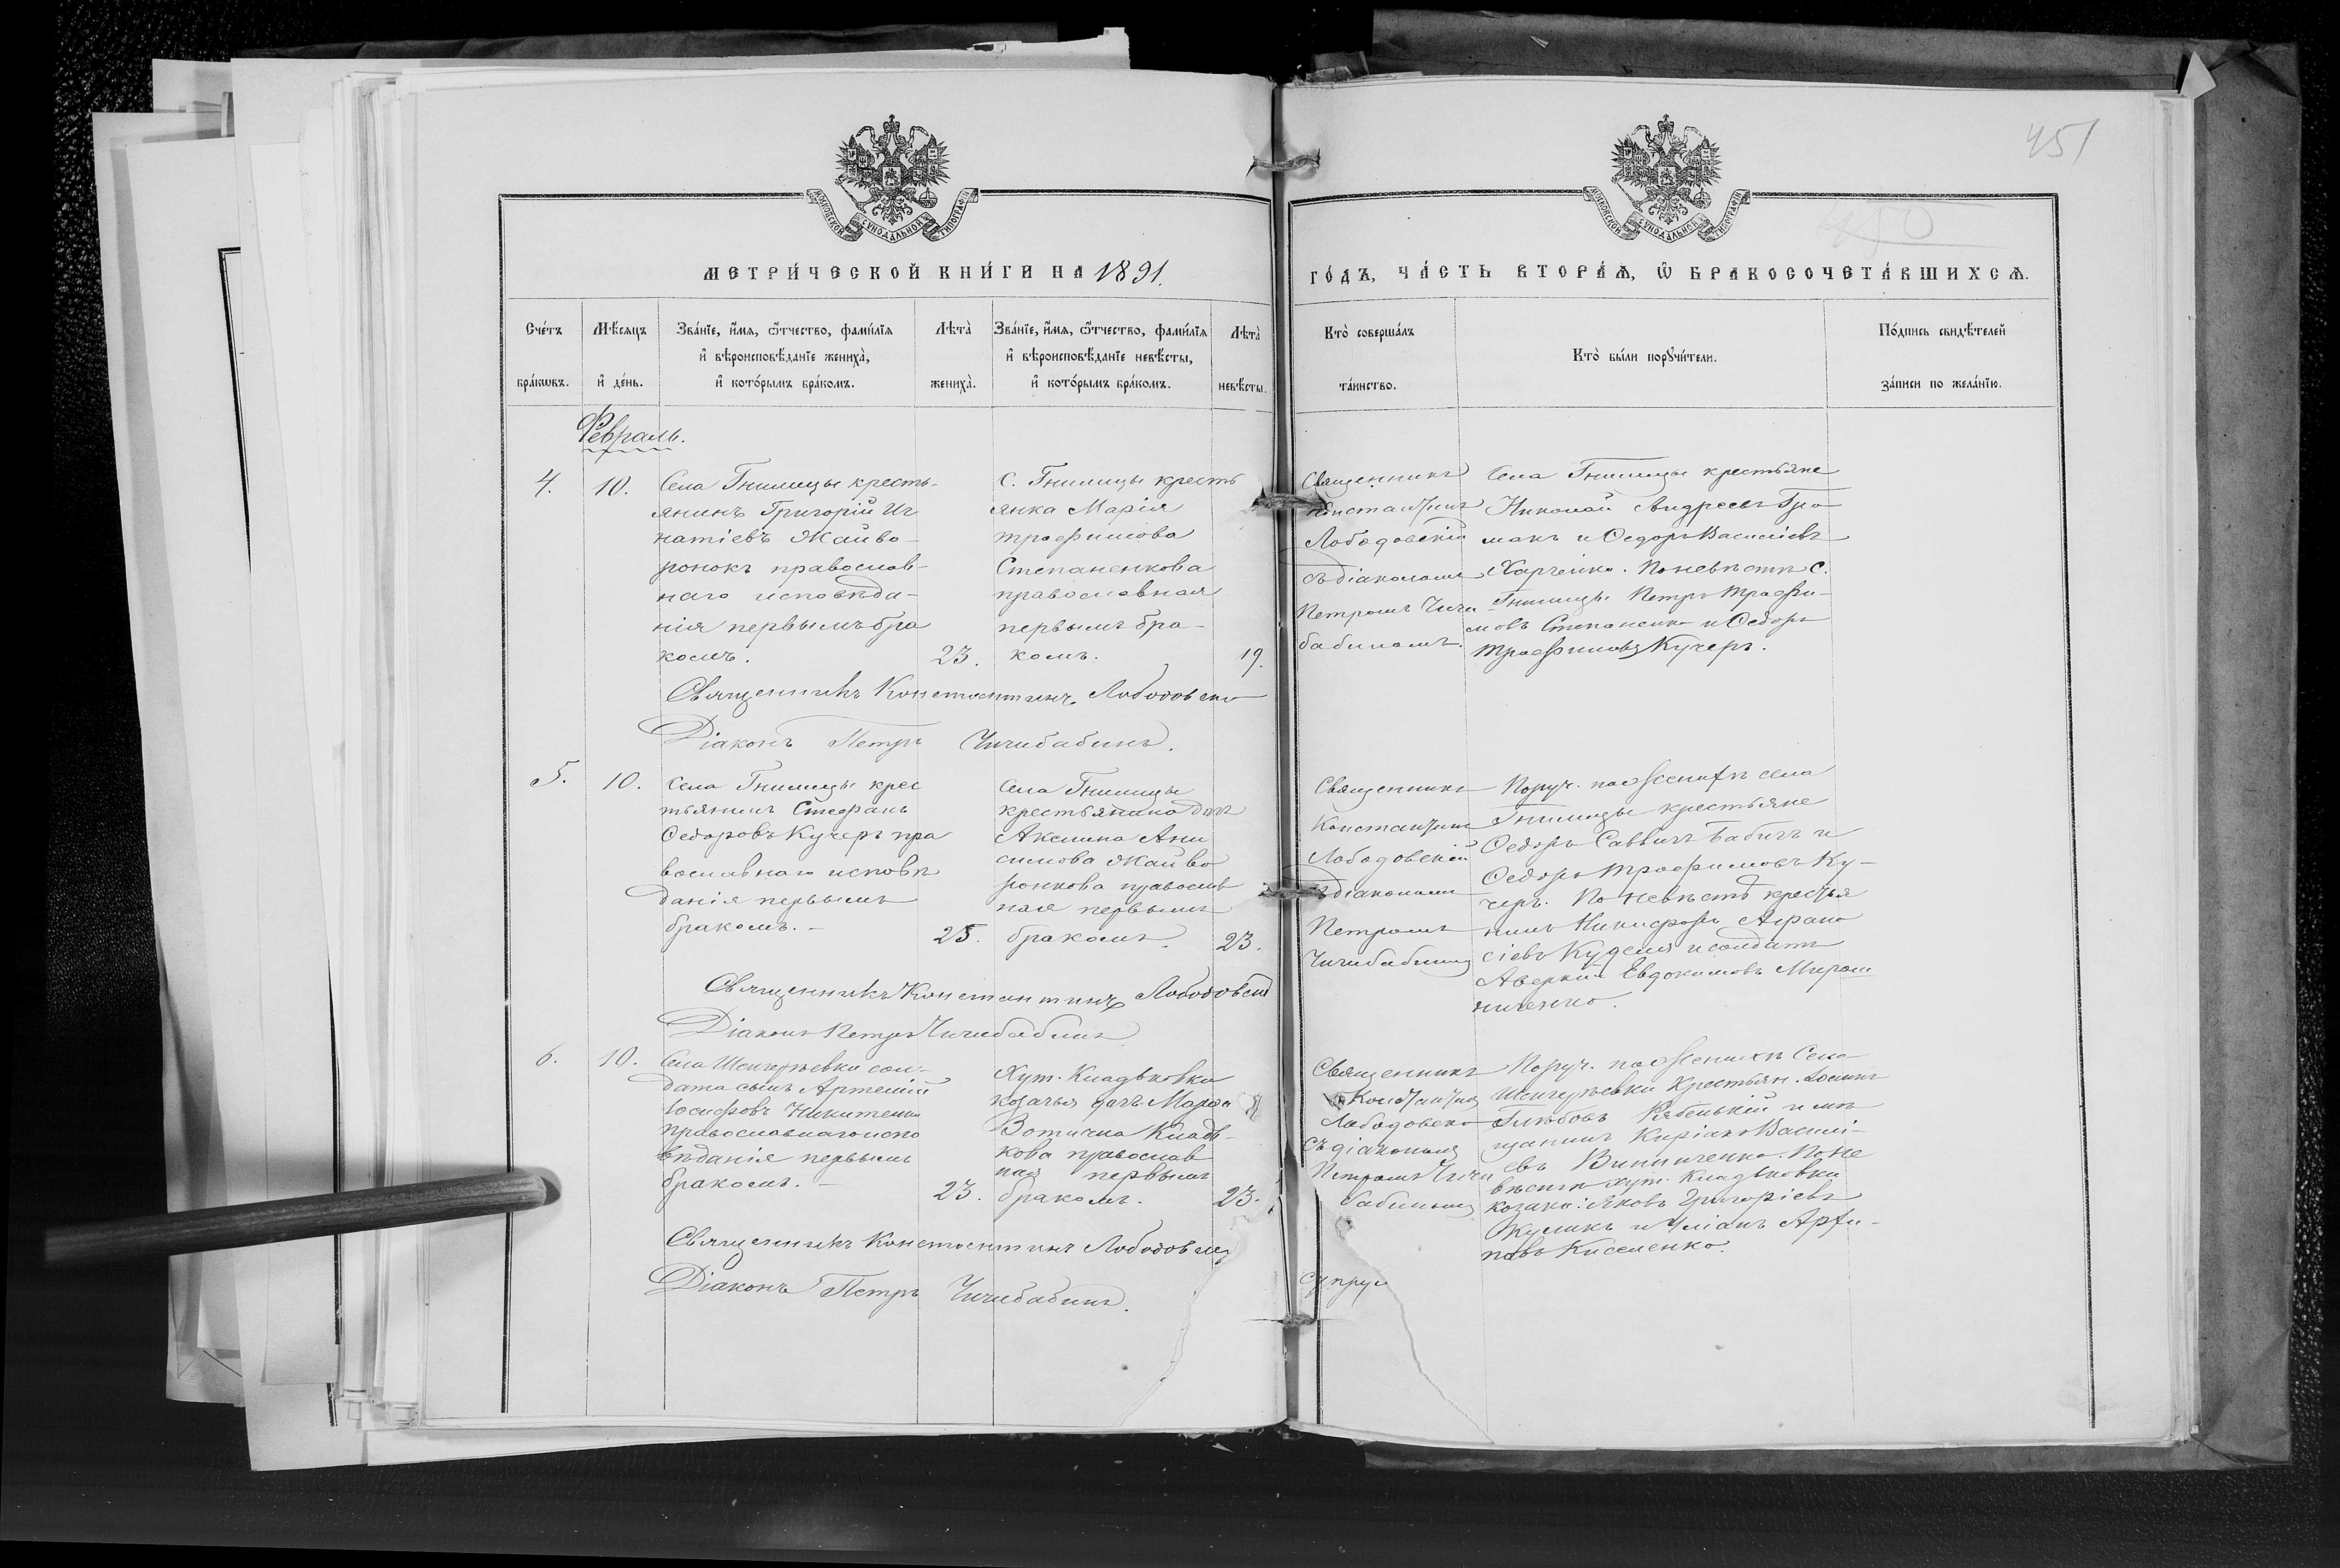 451
450
МОСКОВСКОЙ СѴНОДАЛЬНОЙ ТИПОГРАФІИ
МОСКОВСКОЙ СѴНОДАЛЬНОЙ ТИПОГРАФІИ
МЕТРИ́ЧЕСКОЙ КНИ́ГИ НА 1891.
ГО́ДЪ, ЧА́СТЬ ВТОРА́Ѧ, Ѽ БРАКОСОЧЕТА́ВШИХСѦ.
Сче́тъ бра́кѡвъ.
Мѣ́сѧцъ и҆ де́нь.
Зва́нїе, и҆́мѧ, ѻ҆́тчество, фами́лїѧ
и҆ вѣроисповѣ́данїе жениха̀,
и҆ кото́рымъ бра́комъ.
Лѣта̀ жениха̀.
Зва́нїе, и҆́мѧ, ѻ҆́тчество, фами́лїѧ
и҆ вѣроисповѣ́данїе невѣ́сты,
и҆ кото́рымъ бра́комъ.
Лѣта̀ невѣ́сты.
Кто̀ соверша́лъ та́инство.
Кто̀ бы́ли порꙋчи́тели.
По́дпись свидѣ́телей
за́писи по жела́нїю.
Февраль.
4.
10.
Села Гнилицы кресть-
янинъ Григорій Иг
натіевъ Жайво-
ронокъ православ-
наго исповѣда-
нія первымъ бра
комъ.
23.
С. Гнилицы кресть
янка Марія
Трофимова
Степаненкова
православная
первымъ бра-
комъ.
19.
Священникъ
Константинъ
Лободовскій
съ діакономъ
Петромъ Чичи
бабинымъ.
Села Гнилицы крестьяне
Николай Андреевъ Гро
макъ и Ѳедоръ Василіевъ
Харченко. По невѣстѣ с.
Гнилицы Петръ Трофи-
мовъ Степаненко и Ѳедоръ
Трофимовъ Кучеръ.
Священникъ Константинъ Лободовскій
Діаконъ Петръ Чичибабинъ.
5.
10.
Села Гнилицы крес
тьянинъ Стефанъ
Ѳедоровъ Кучеръ пра
вославнаго исповѣ
данія первымъ
бракомъ.-
25.
Села Гнилицы
крестьянина дочь
Акилина Ани
симова Жайво
ронкова православ
ная первымъ
бракомъ.
23.
Священникъ
Константинъ
Лободовскій
съ діакономъ
Петромъ
Чичибабинымъ
Поруч. по женихѣ села
Гнилицы крестьяне
Ѳедоръ Саввичъ Бабичъ и
Ѳедоръ Трофимовъ Ку-
черъ. По невѣстѣ крестья
нинъ Никифоръ Афана
сіевъ Куделя и солдатъ
Аверкій Евдокимовъ Мирош
ниченко.
Священникъ Константинъ Лободовскій
Діаконъ Петръ Чичибабинъ
6.
10.
Села сол-
дата сынъ Артемій
Іосифовъ Никитенко
православнаго испо
вѣданія первымъ
бракомъ.-
23.
Хут. Кладьковки
козачья дочь
Кладь-
кова православ
ная первымъ
бракомъ.
23.
Священникъ
Константинъ
Лободовскій
съ діакономъ
Петромъ Чичи
бабинымъ
Поруч. по женихѣ Села
Крестьян.
и мѣ
щанинъ Киріакъ Василі-
евъ Винниченко. По не
вѣстѣ хут. Кладьковки
козаки: Яковъ Григоріевъ
Жуликъ и
Киселенко.
Священникъ Константинъ Лободовскій
Діаконъ Петръ Чичибабинъ.